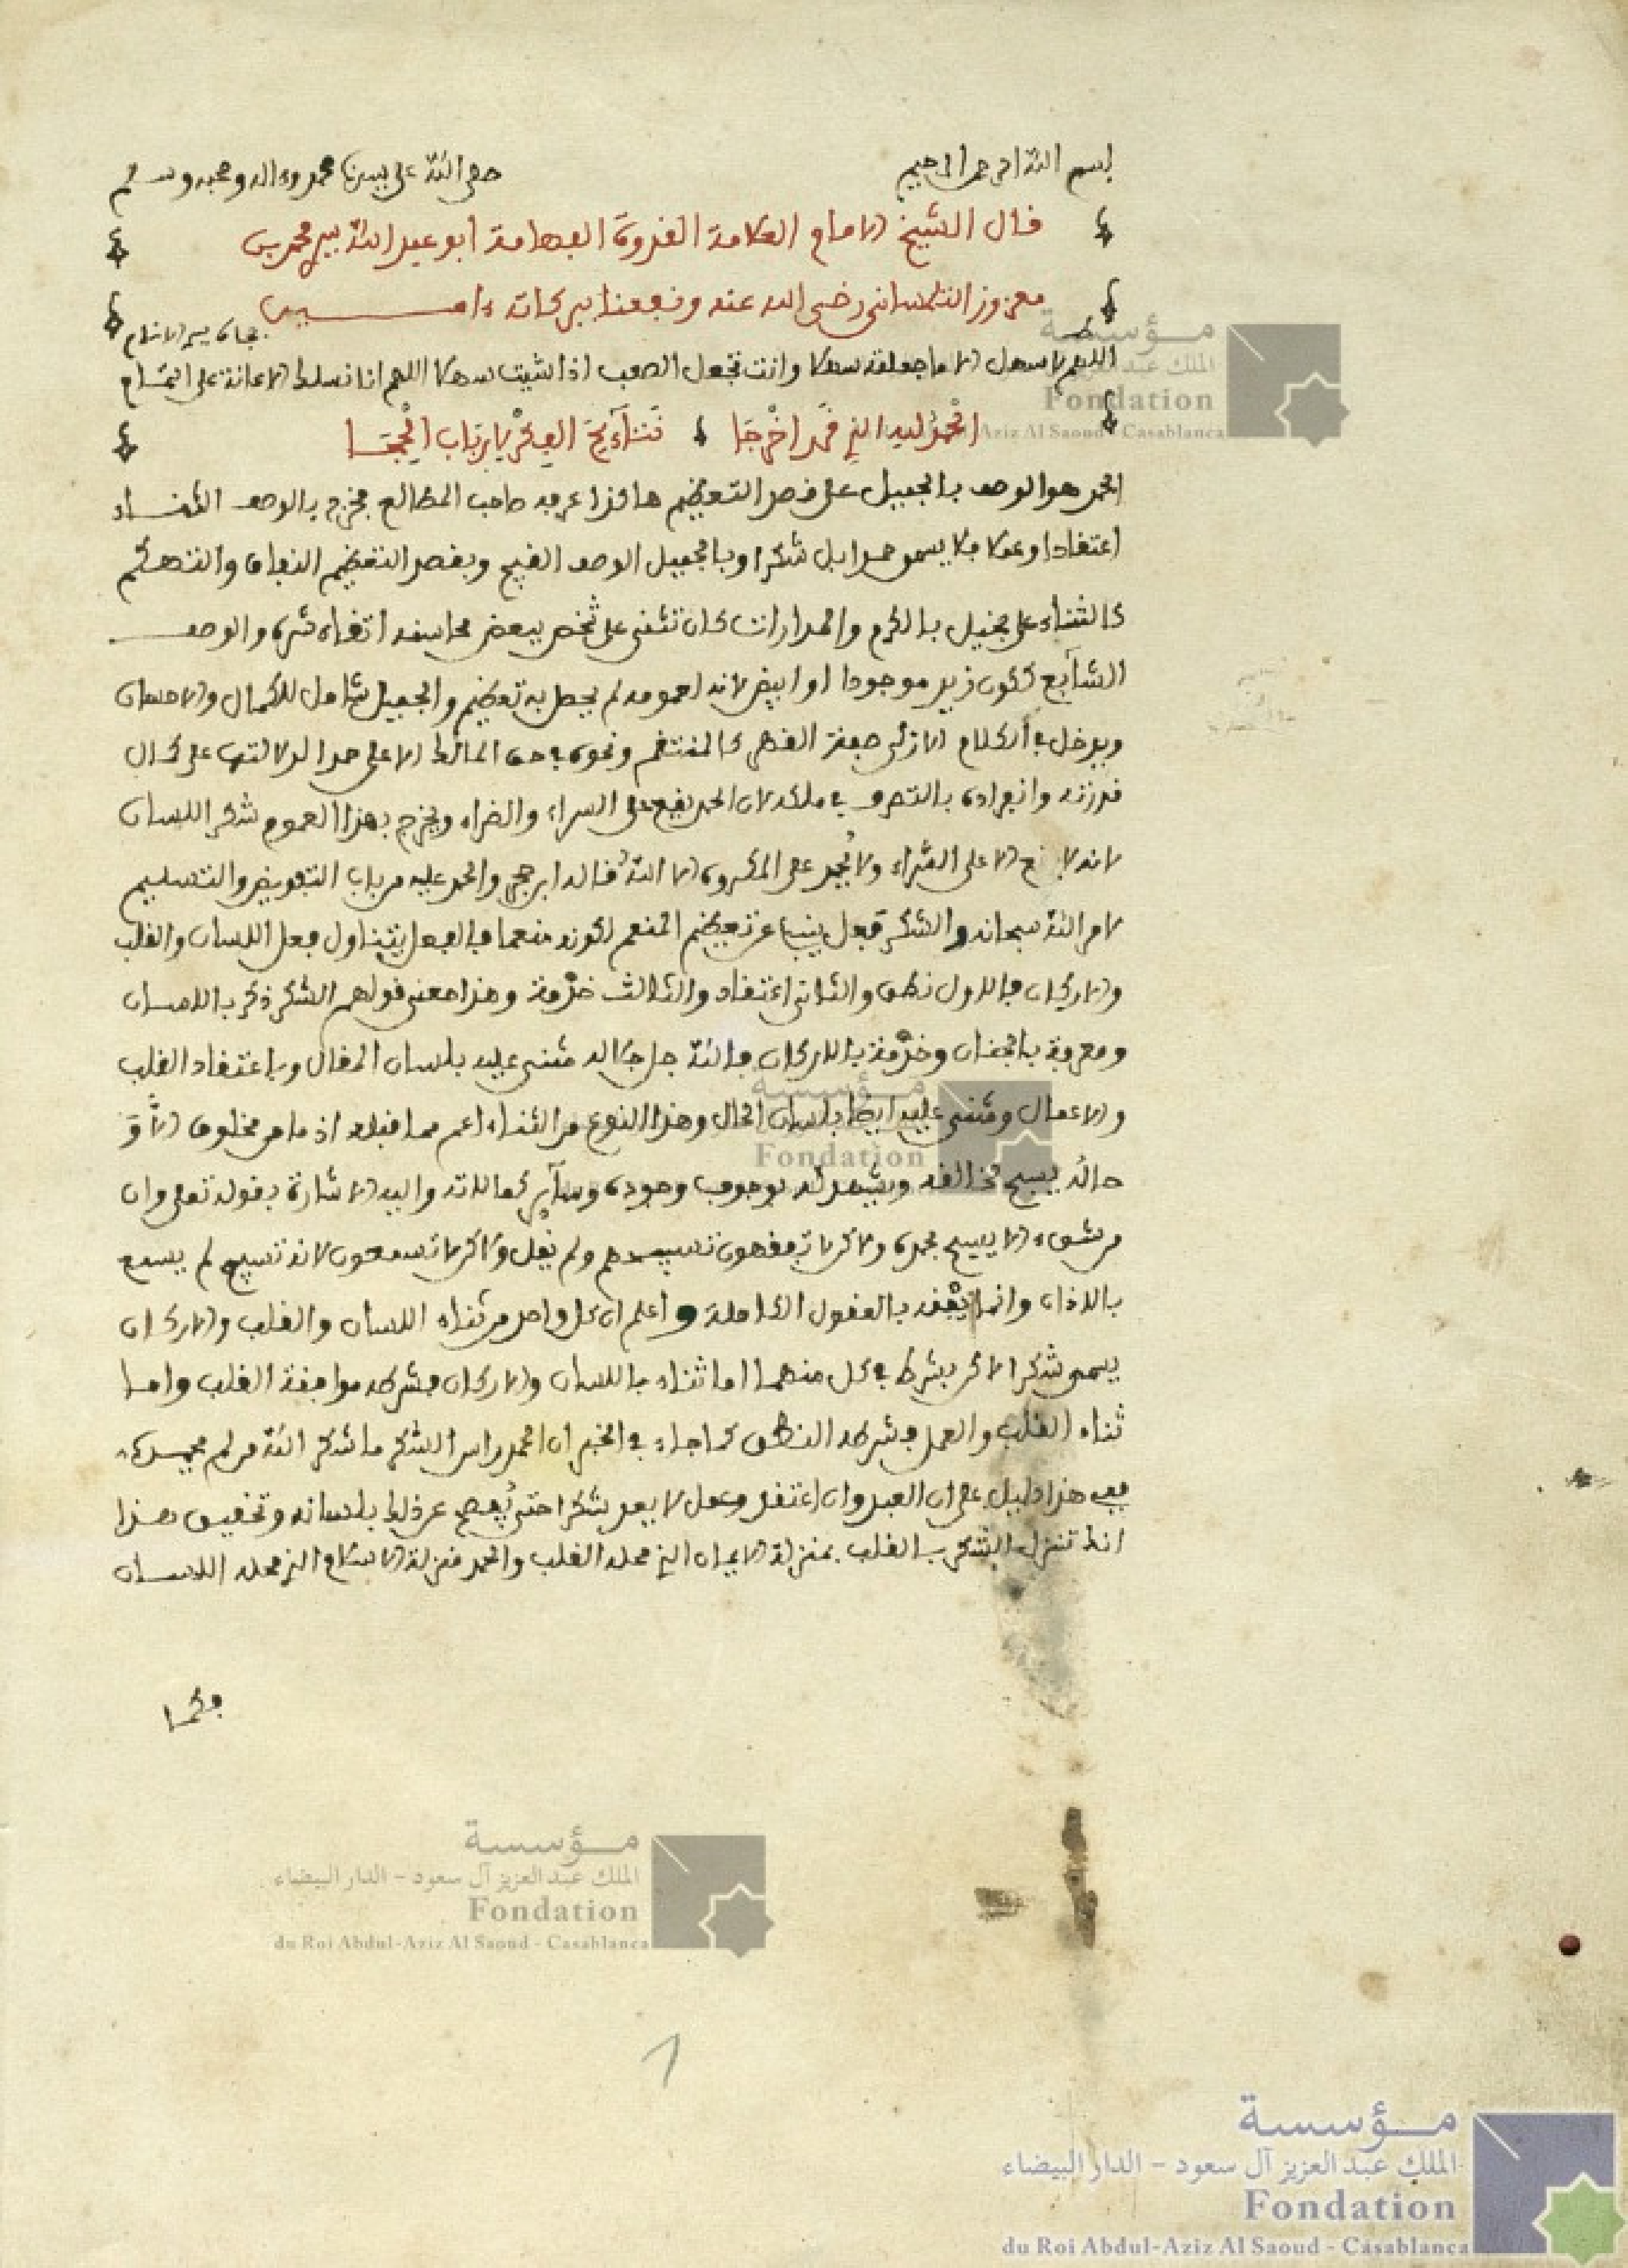 بسم الله الرحمن الرحيم صلى الله على سيدنا محمد وءاله وصحبه وسلم
قال الشيخ الامام العلامة القدوة الفهامة ابو عبد الله سيدي محمد بن
معزوز التلمساني رضي الله عنه ونفعنا ببركاته ءاميـــن
بجاه سيد الانام
اللهم لا سهل الا ما جعلته سهلا وانت تجعل الصعب اذا شيت سهلا اللهم انا نسلك الاعانة على التمام
الْحمد لله الذي قد اخْرجَا نتآئج الفكْر لِأرباب الْحجَــا
الحمد هو الوصف بالجميل على قصد التعظيم هاكذا عرفه صاحب المطالع فخرج بالوصف الثنــاء
اعتقادا وعملا فلا يسمى حمدا بل شكرا وبالجميل الوصف القبيح وبقصد التعظيم النفاق والتهكم
كالثناء على بخيل بالكرم والمدارات كان تثني على شخص ببعض محاسنه اتقاء شره والوصف
الشآئع ككون زيد موجودا او ابيض لانه لم يحصل به تعظيم والجميل شامل للكمال والاحسان
ويدخل في الكلام الازلي صفة القهر كالمنتقم ونحوه في حق المالك الاعلى حمدا لدلالتها على كمال
قدرته وانفراده بالتصرف في ملكه لان الحمد يقع على السراء والضراء ويخرج بهذا العموم شكر اللسان
لانه لا الا على السراء ولا يُحمد على المكروه الا الله قاله ابن حجر والحمد عليه من باب التفويض والتسليم
لامر الله سبحانه والشكر فعل ينبئ عن تعظيم المنعم لكونه منعما فالفعل يتناول فعل اللسان والقلب
والاركان فالاول نطق والثاني اعتقاد والثالث خدْمة وهذا معنى قولهم الشكر ذكر باللســان
ومعرفة بالجنان وخدْمة بالاركان فالله جل جلاله مثنى عليه بلسان المقال وباعتقاد القلب
والاعمال ومثنى عليه ايضا بلسان الحال وهذا النوع من الثناء اعم مما قبله اذ ما من مخلوق الا وَ
حالُه يسبح لخالقه ويشهد له بوجوب وجوده وسآئر كمالاته واليه الاشارة بقوله تعلى وان
من شيء الا يسبح بحمده ولاكن لا تفقهون تسبيحهم ولم يقل ولاكن لا تسمعون لانه تسبيح لم يسمع
بالاذان وانما يفقه بالعقول الكاملة واعلم ان كل واحد من ثناء اللسان والقلب والاركان
يسمى شكرا لاكن بشرط في كل منهما اما ثناء باللسان والاركان فشرطه موافقة القلب وامــا
ثناء القلب والعمل فشرطه النطق كما جاء في الخبر ان الحمد راس الشكر ما شكر الله من لم يحمــده
ففي هذا دليل على ان العبد وان اعتقد وعمل لا يعد شكرا حتى يُفصح عن ذلك بلسانه وتحقيق هــذا
انك تنزل الشكر بالقلب بمنزلة الايمان الذي محله القلب والحمد منزلة الاسلام الذي محله اللســان
فكمـا
1
مؤسسة
الملك عبد العزيز آل سعود – الدار البيضاء
Fondation
du Roi Abdul-Aziz Al Saoud - Casablanca